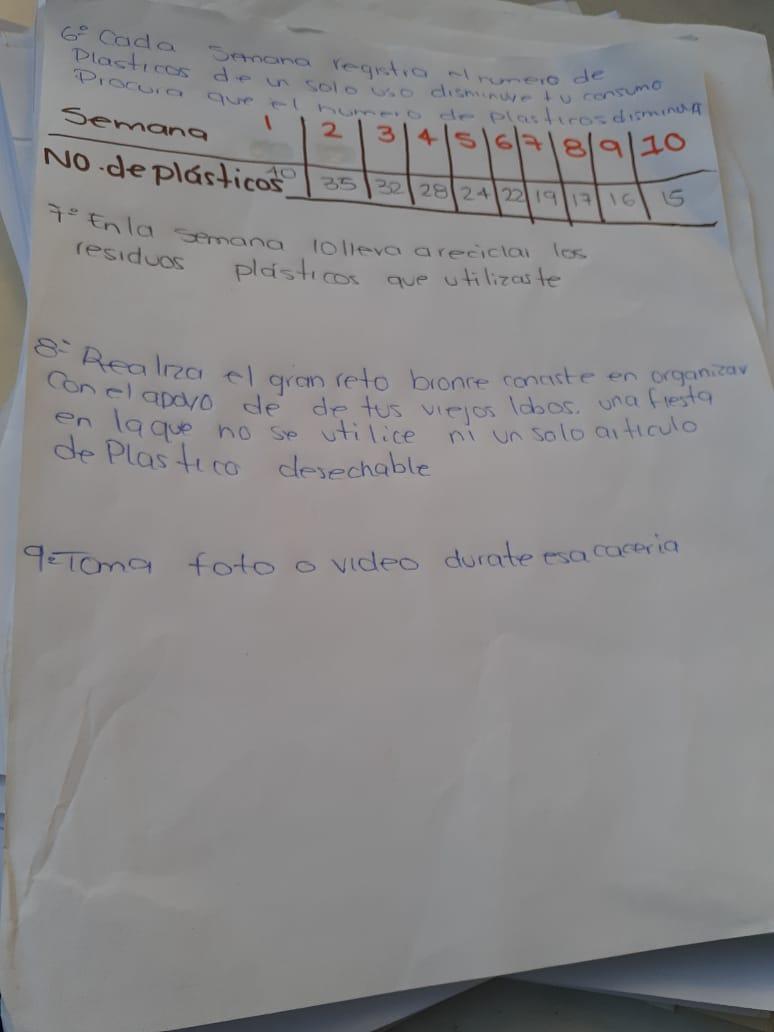 6º Cada Semana registra el numero de
Plasticos de un solo uso disminuye tu consumo
Procura que el numero de plasticos disminuya
Semana 1 2 3 4 5 6 7 8 9 10
NO. de plásticos 40 35 32 28 24 22 19 17 16 15
7º En la semana 10 lleva a reciclar los
residuos plásticos que utilizaste
8º Realiza el gran reto bronce consiste en organizar
Con el apoyo de de tus viejos lobos. una fiesta
en la que no se utilice ni un solo articulo
de Plastico desechable
9º Toma foto o video durate esa caceria